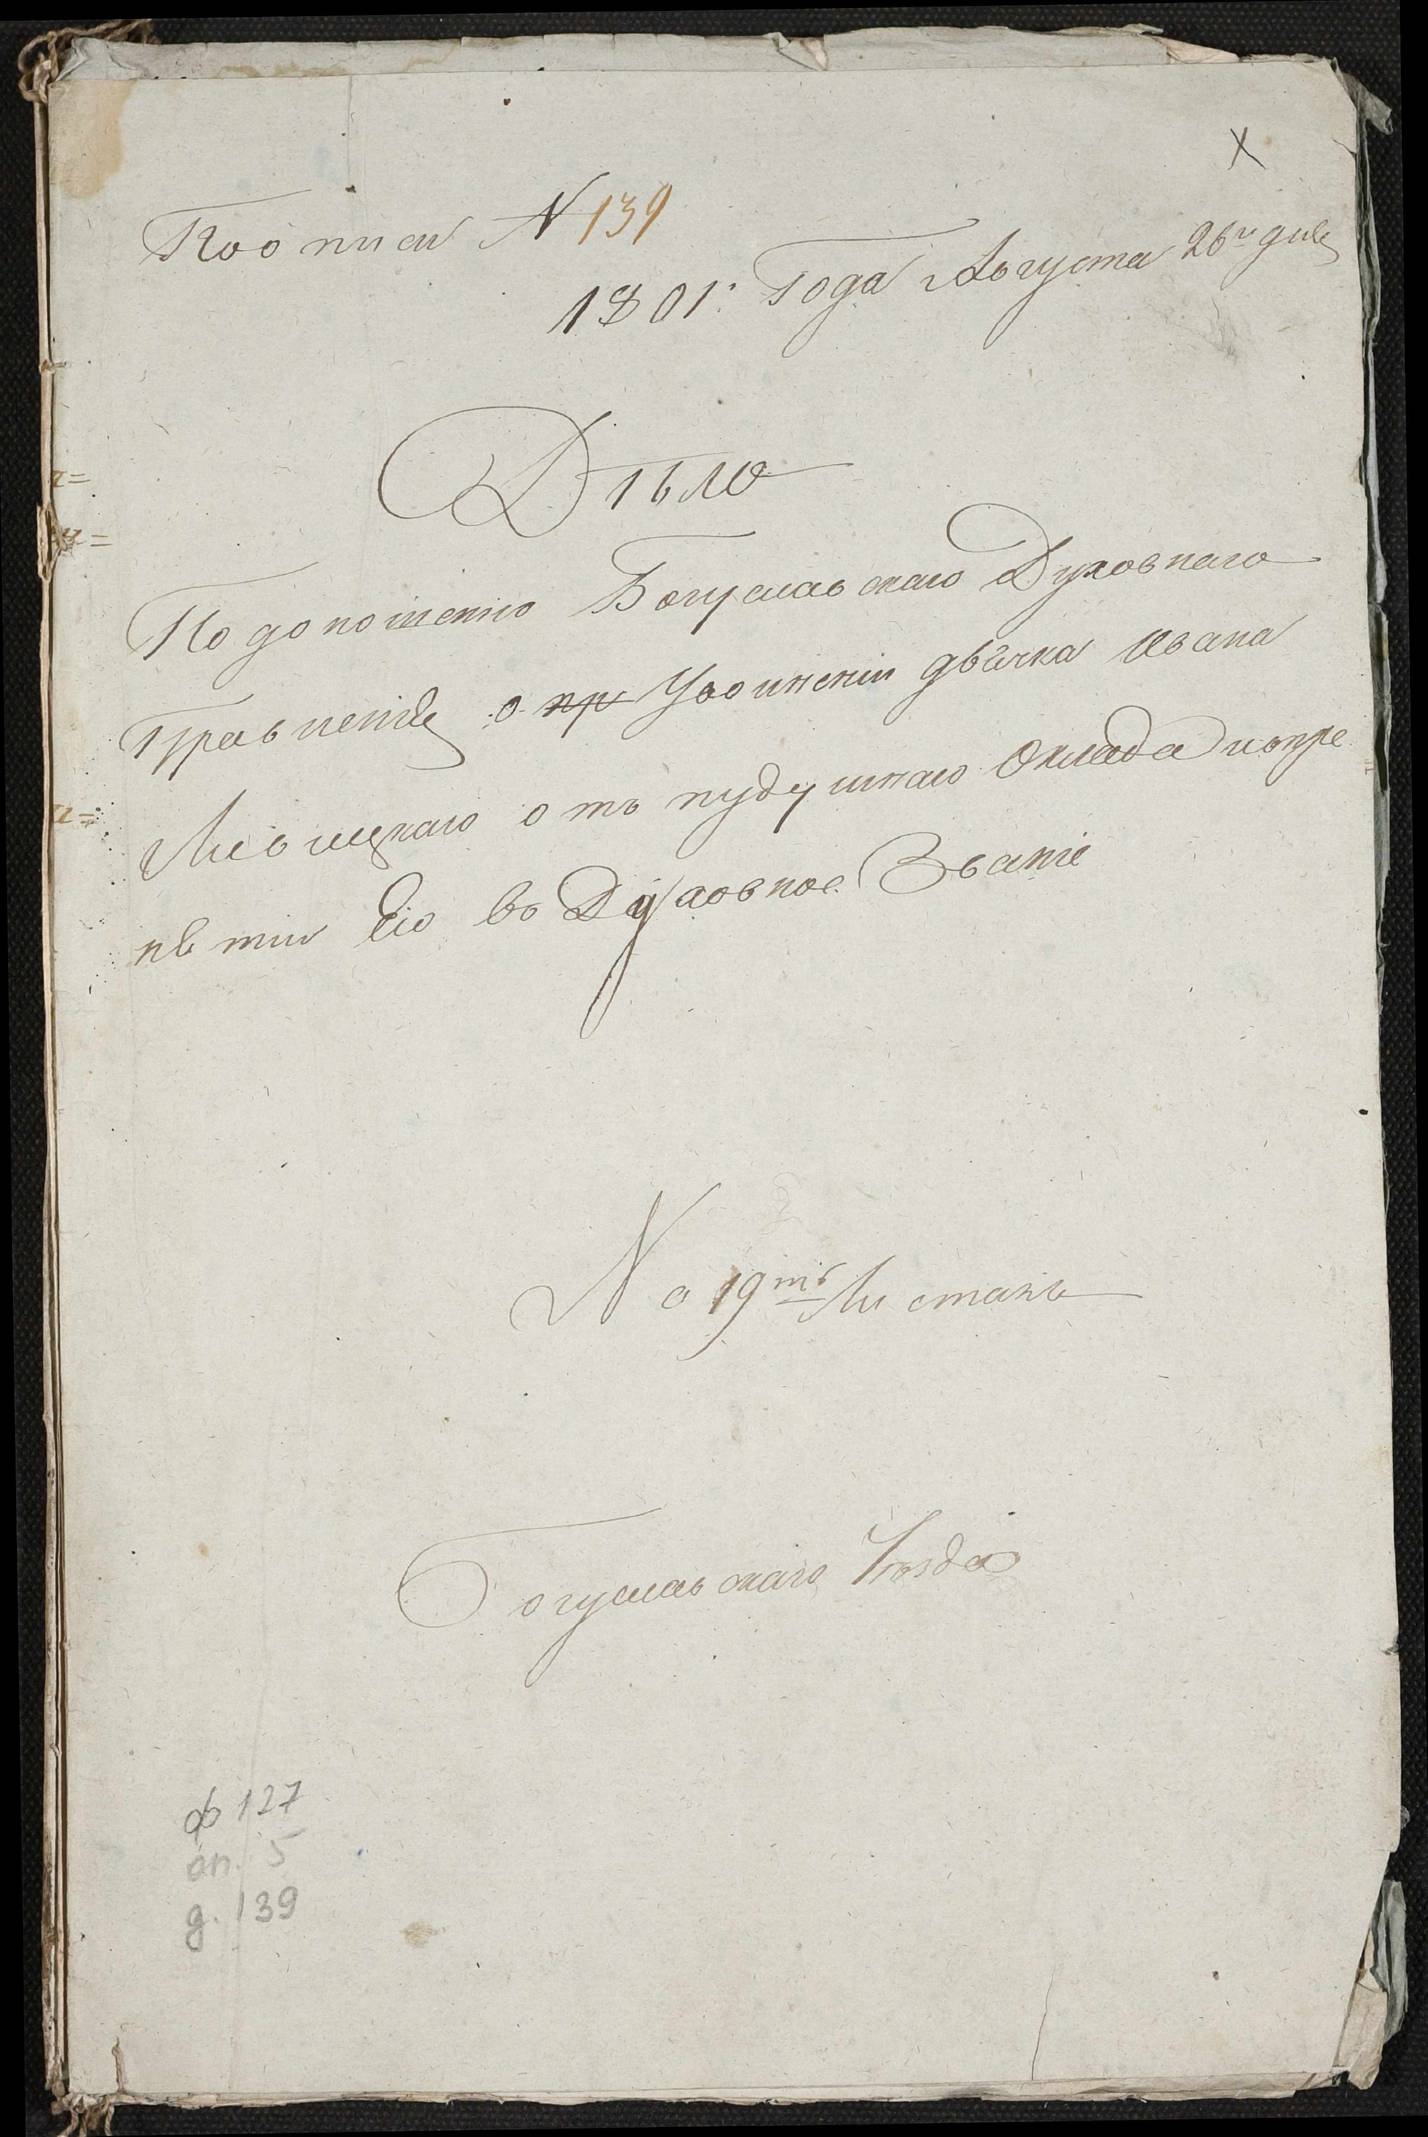 По описи № 139
1801: Года Августа 26го дня
Дѣло
По доношенію Богуславскаго Духовнаго
Правленія о пр Уволненіи дячка Ивана
Левицкаго отъ пудушнаго Оклада и опре
нѣтіи Его въ Духовное Званіе
На 19тъ Листахъ
Богуславскаго Уезда
ф 127
оп. 5
д. 139